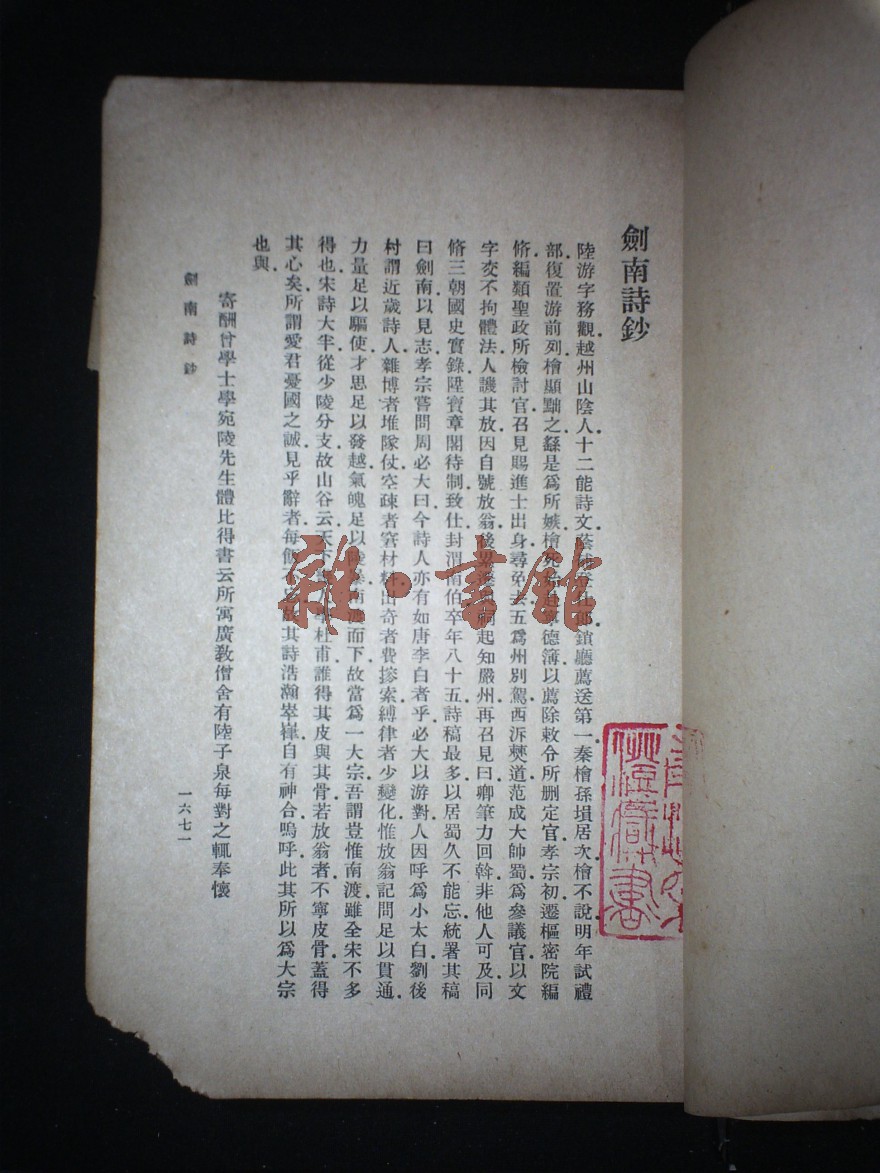 劍南詩鈔
陸游字務觀越州山陰人十二能詩文蔭補登仕郎鎖廳薦送第一秦檜孫塤居次檜不說明年試禮
部復置游前列檜顯黜之繇是爲所嫉檜死始赴寧德簿以薦除敕令所删定官孝宗初遷樞密院編
脩編類聖政所檢討官召見賜進士出身尋免去五爲州別駕西泝僰道范成大帥蜀爲參議官以文
字交不拘體法人譏其放因自號放翁後累遷 起知嚴州再召見曰卿筆力回斡非他人可及同
脩三朝國史實錄陞寶章閣待制致仕封渭南伯卒年八十五詩稿最多以居蜀久不能忘統署其稿
曰劍南以見志孝宗嘗問周必大曰今詩人亦有如唐李白者乎必大以游對人因呼爲小太白劉後
村謂近歲詩人雜博者堆隊仗空疎者窘材料出奇者費搜索縛律者少變化惟放翁記問足以貫通
力量足以驅使才思足以發越氣魄足以陵暴南渡而下故當爲一大宗吾謂豈惟南渡雖全宋不多
得也宋詩大半從少陵分支故山谷云天下 杜甫誰得其皮與其骨若放翁者不寧皮骨蓋得
其心矣所謂愛君憂國之誠見乎辭者每飯不忘故其詩浩瀚崒嵂自有神合嗚呼此其所以爲大宗
也與
寄酬曾學士學宛陵先生體比得書云所寓廣敎僧舍有陸子泉每對之輒奉懷
劍南詩鈔
一六七一
雜·書館